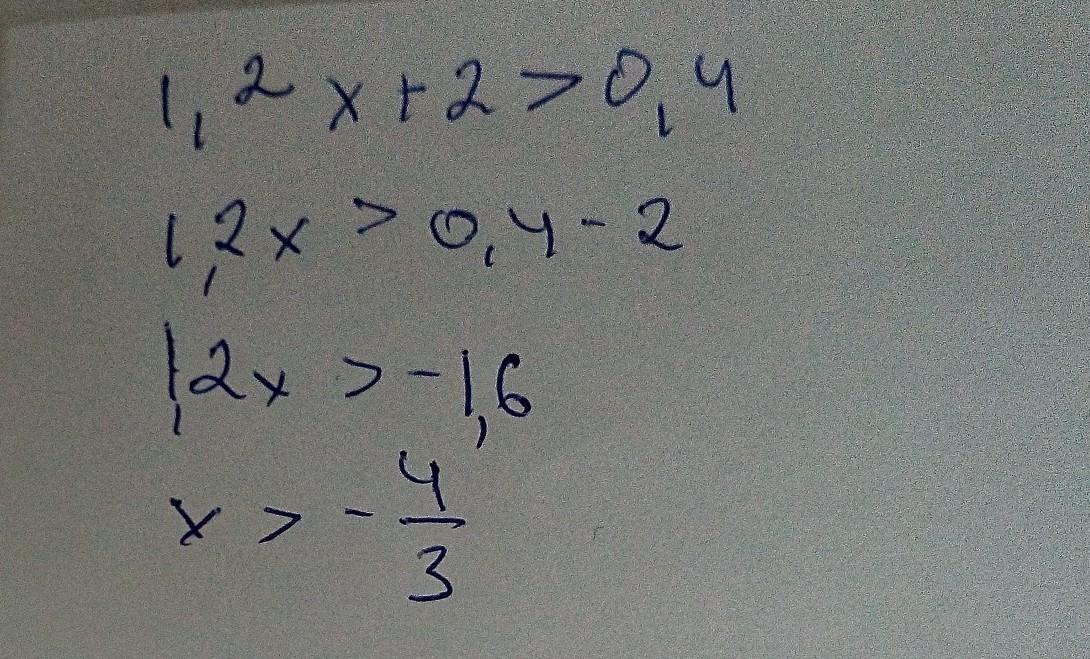 1,2x+2>0,4
1,2x>0,4-2
1,2x>-1,6
x>-4/3